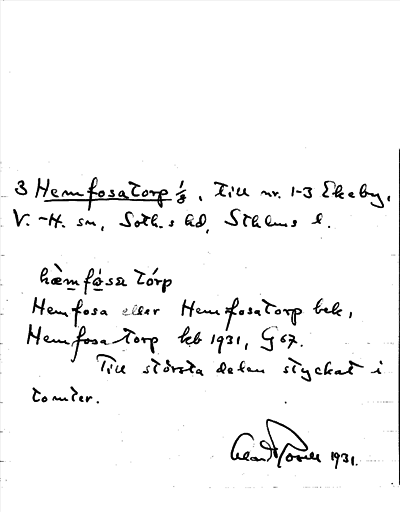 3 Hemfosatorp 1/3, till nr. 1-3 Ekeby,
V.-H. sn, Soth.s hd, Sthlms l.
hæ̀mfὼsa tórp
Hemfosa eller Hemfosatorp bek,
Hemfosatorp kb 1931, G 67.
Till största delen styckat i
tomter.
1931.